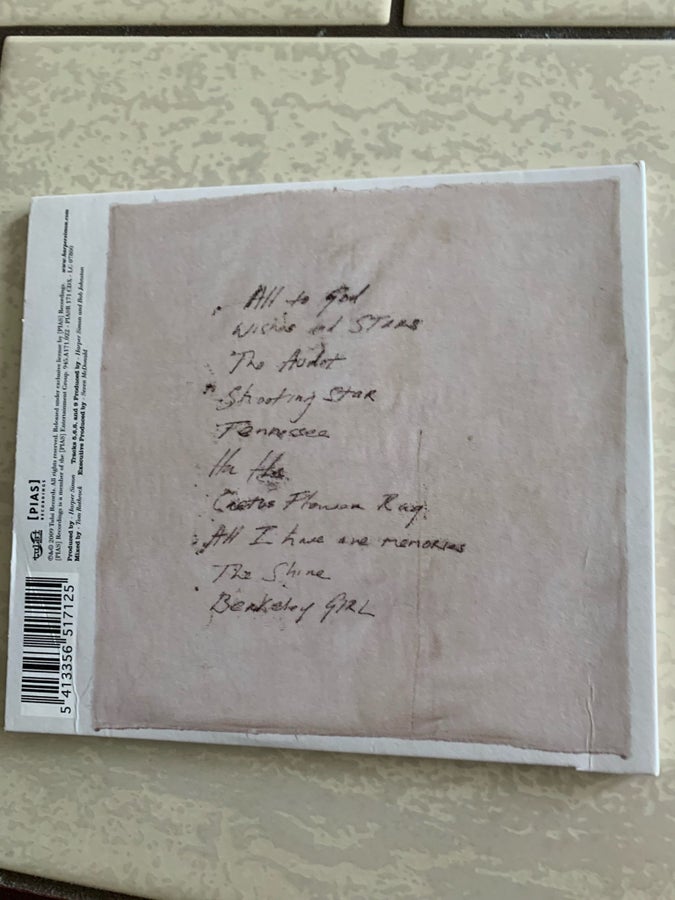 All to God
Wishes and STARS
The Audit
Shooting Star
Tennessee
Ha Ha
Cactus Flower Rag
All I have are memories
The Shine
Berkeley GIRL
[PIAS]
RECORDINGS
℗&© 2009 Tulsi Records. All rights reserved. Released under exclusive license by [PIAS] Recordings. www.harpersimon.com
[PIAS] Recordings is a member of the [PIAS] Entertainment Group. 945.A171.022 - PIASR 171 CDX - LC 07800
Produced by - Harper Simon Tracks 5,6,8, and 9 Produced by - Harper Simon and Bob Johnston
Mixed by - Tom Rothrock Executive Produced by - Seven McDonald
5 413356 517125